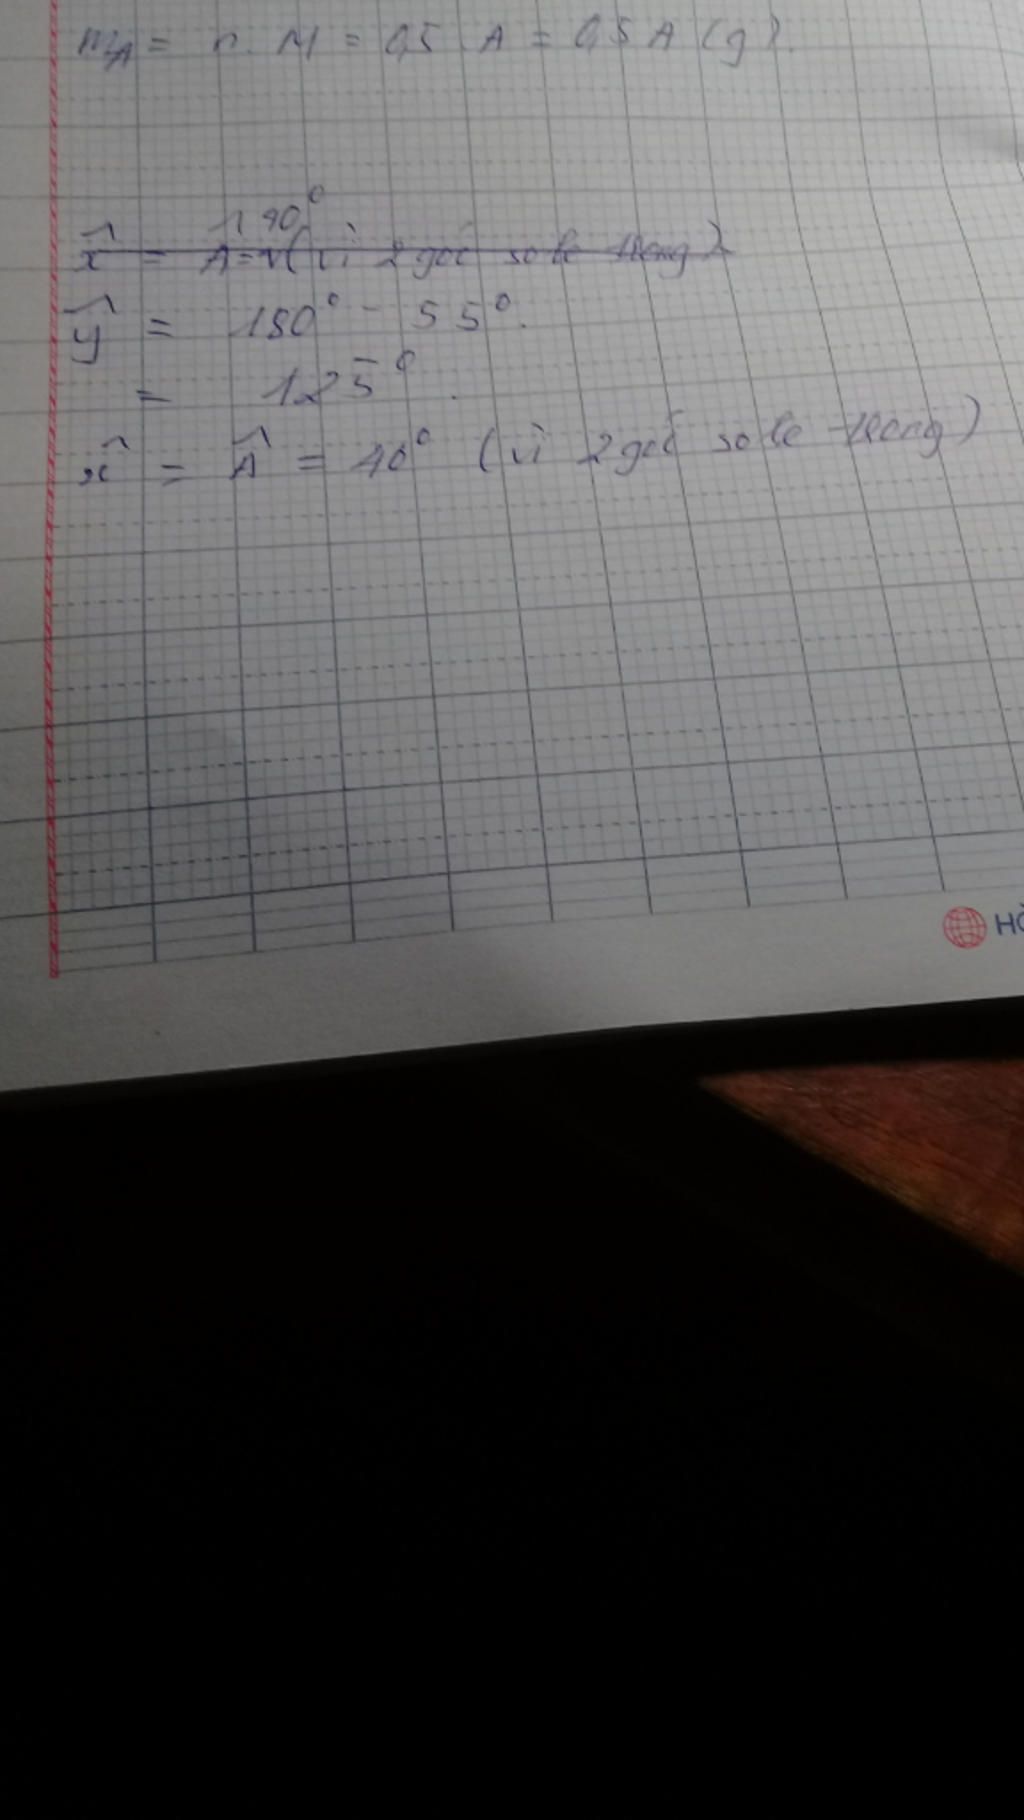 mA = n. M = 0,5 . A = 0,5 A (g)
x̂ = Â = 90° (vì 2 góc so le trong)
ŷ = 180° - 55°.
= 125°.
x̂ = Â = 40° (vì 2 góc so le trong)
HỒ